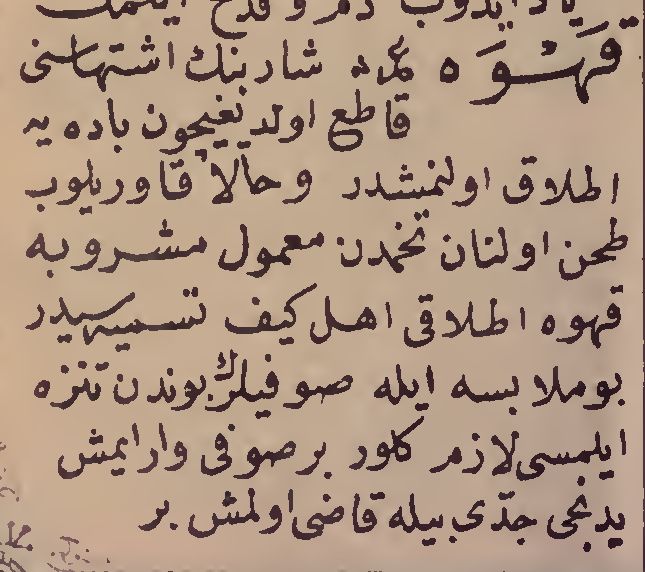 ایدوب دم و قدح ایتمك
قَهْوَه شاربنك اشتهاسنی
قاطع اولدیغیچون باده یه
اطلاق اولنمشدر وحالا قاوریلوب
طحن اولنان تخمدن معمول مشروبه
قهوه اطلاقی اهل کیف تسمیه سیدر
بوملابسه ایله صوفیلرك بوندن تنزه
ایلمسی لازم کلور برصوفی وارایمش
یدنجی جدّی بیله قاضی اولمش بر